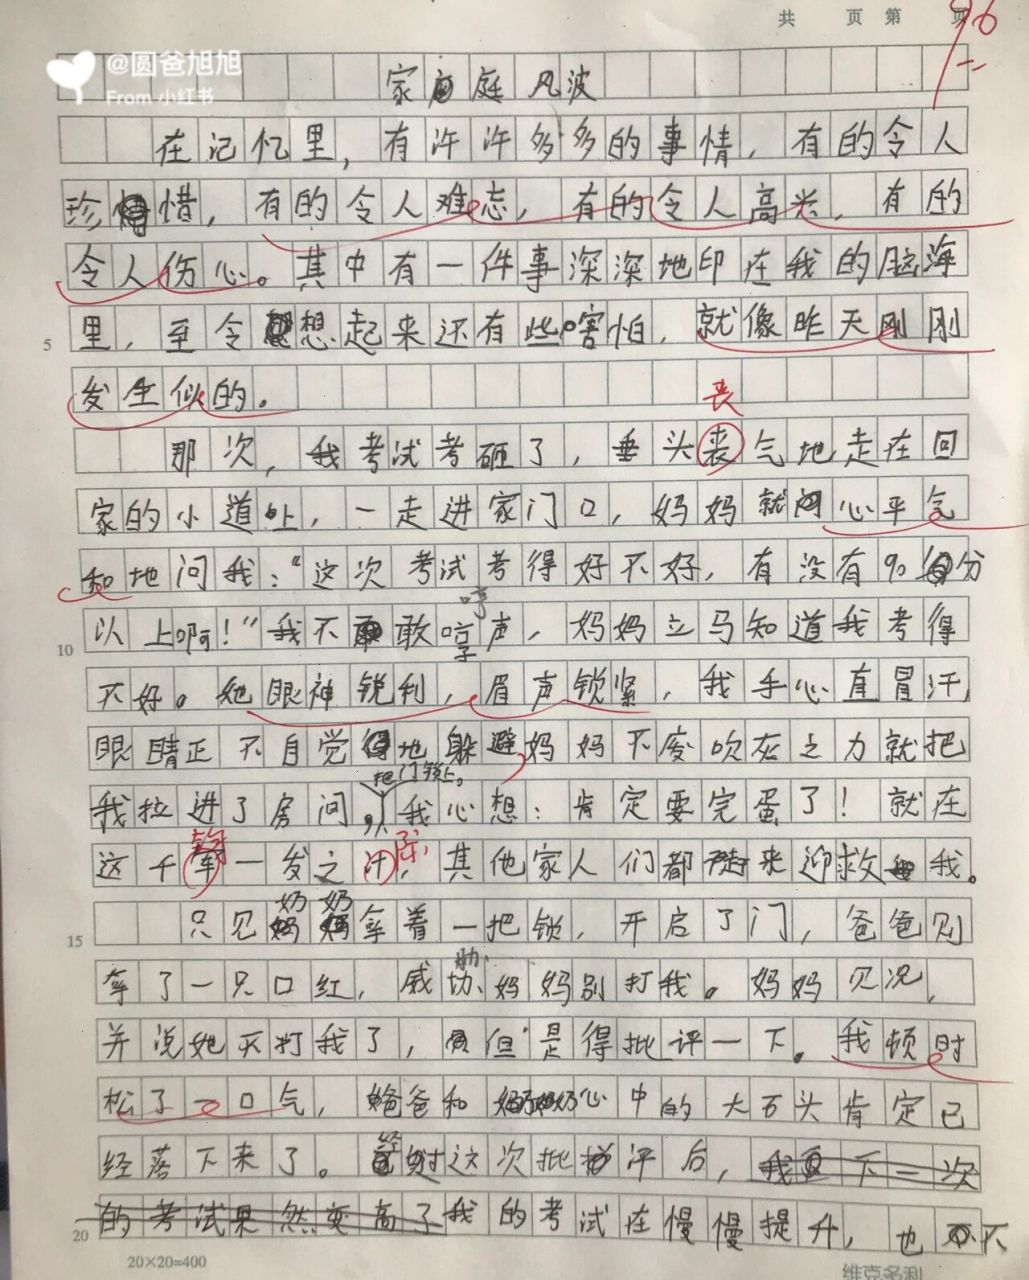 共 页 第 页
96
@圆爸旭旭
From 小红书
家庭风波
在记忆里，有许许多多的事情，有的令人
珍惜，有的令人难忘，有的令人高兴，有的
令人伤心。其中有一件事深深地印在我的脑海
里，至令想起来还有些害怕，就像昨天刚刚
5
发生似的。
丧
那次，我考试考砸了，垂头丧气地走在回
家的小道上，一走进家门口，妈妈就心平气
和地问我：“这次考试考得好不好，有没有90分
以上啊！”我不敢哼声，妈妈立马知道我考得
10
不好。她眼神锐利，眉声锁紧，我手心直冒汗，
眼睛正不自觉地躲避妈妈不废吹灰之力就把
把门锁上。
我拉进了房间，我心想：肯定要完蛋了！就在
这千军一发之汗，其他家人们都赶来迎救我。
奶奶
只见拿着一把锁，开启了门，爸爸则
15
拿了一只口红，威劝妈妈别打我。妈妈见况，
并说她不打我了，但是得批评一下。我顿时
松了一口气，爸爸和奶奶心中的大石头肯定已
经落下来了。这次批评后，我下一次
的考试果然变高了我的考试在慢慢提升，也不
20
20×20=400
维克多利